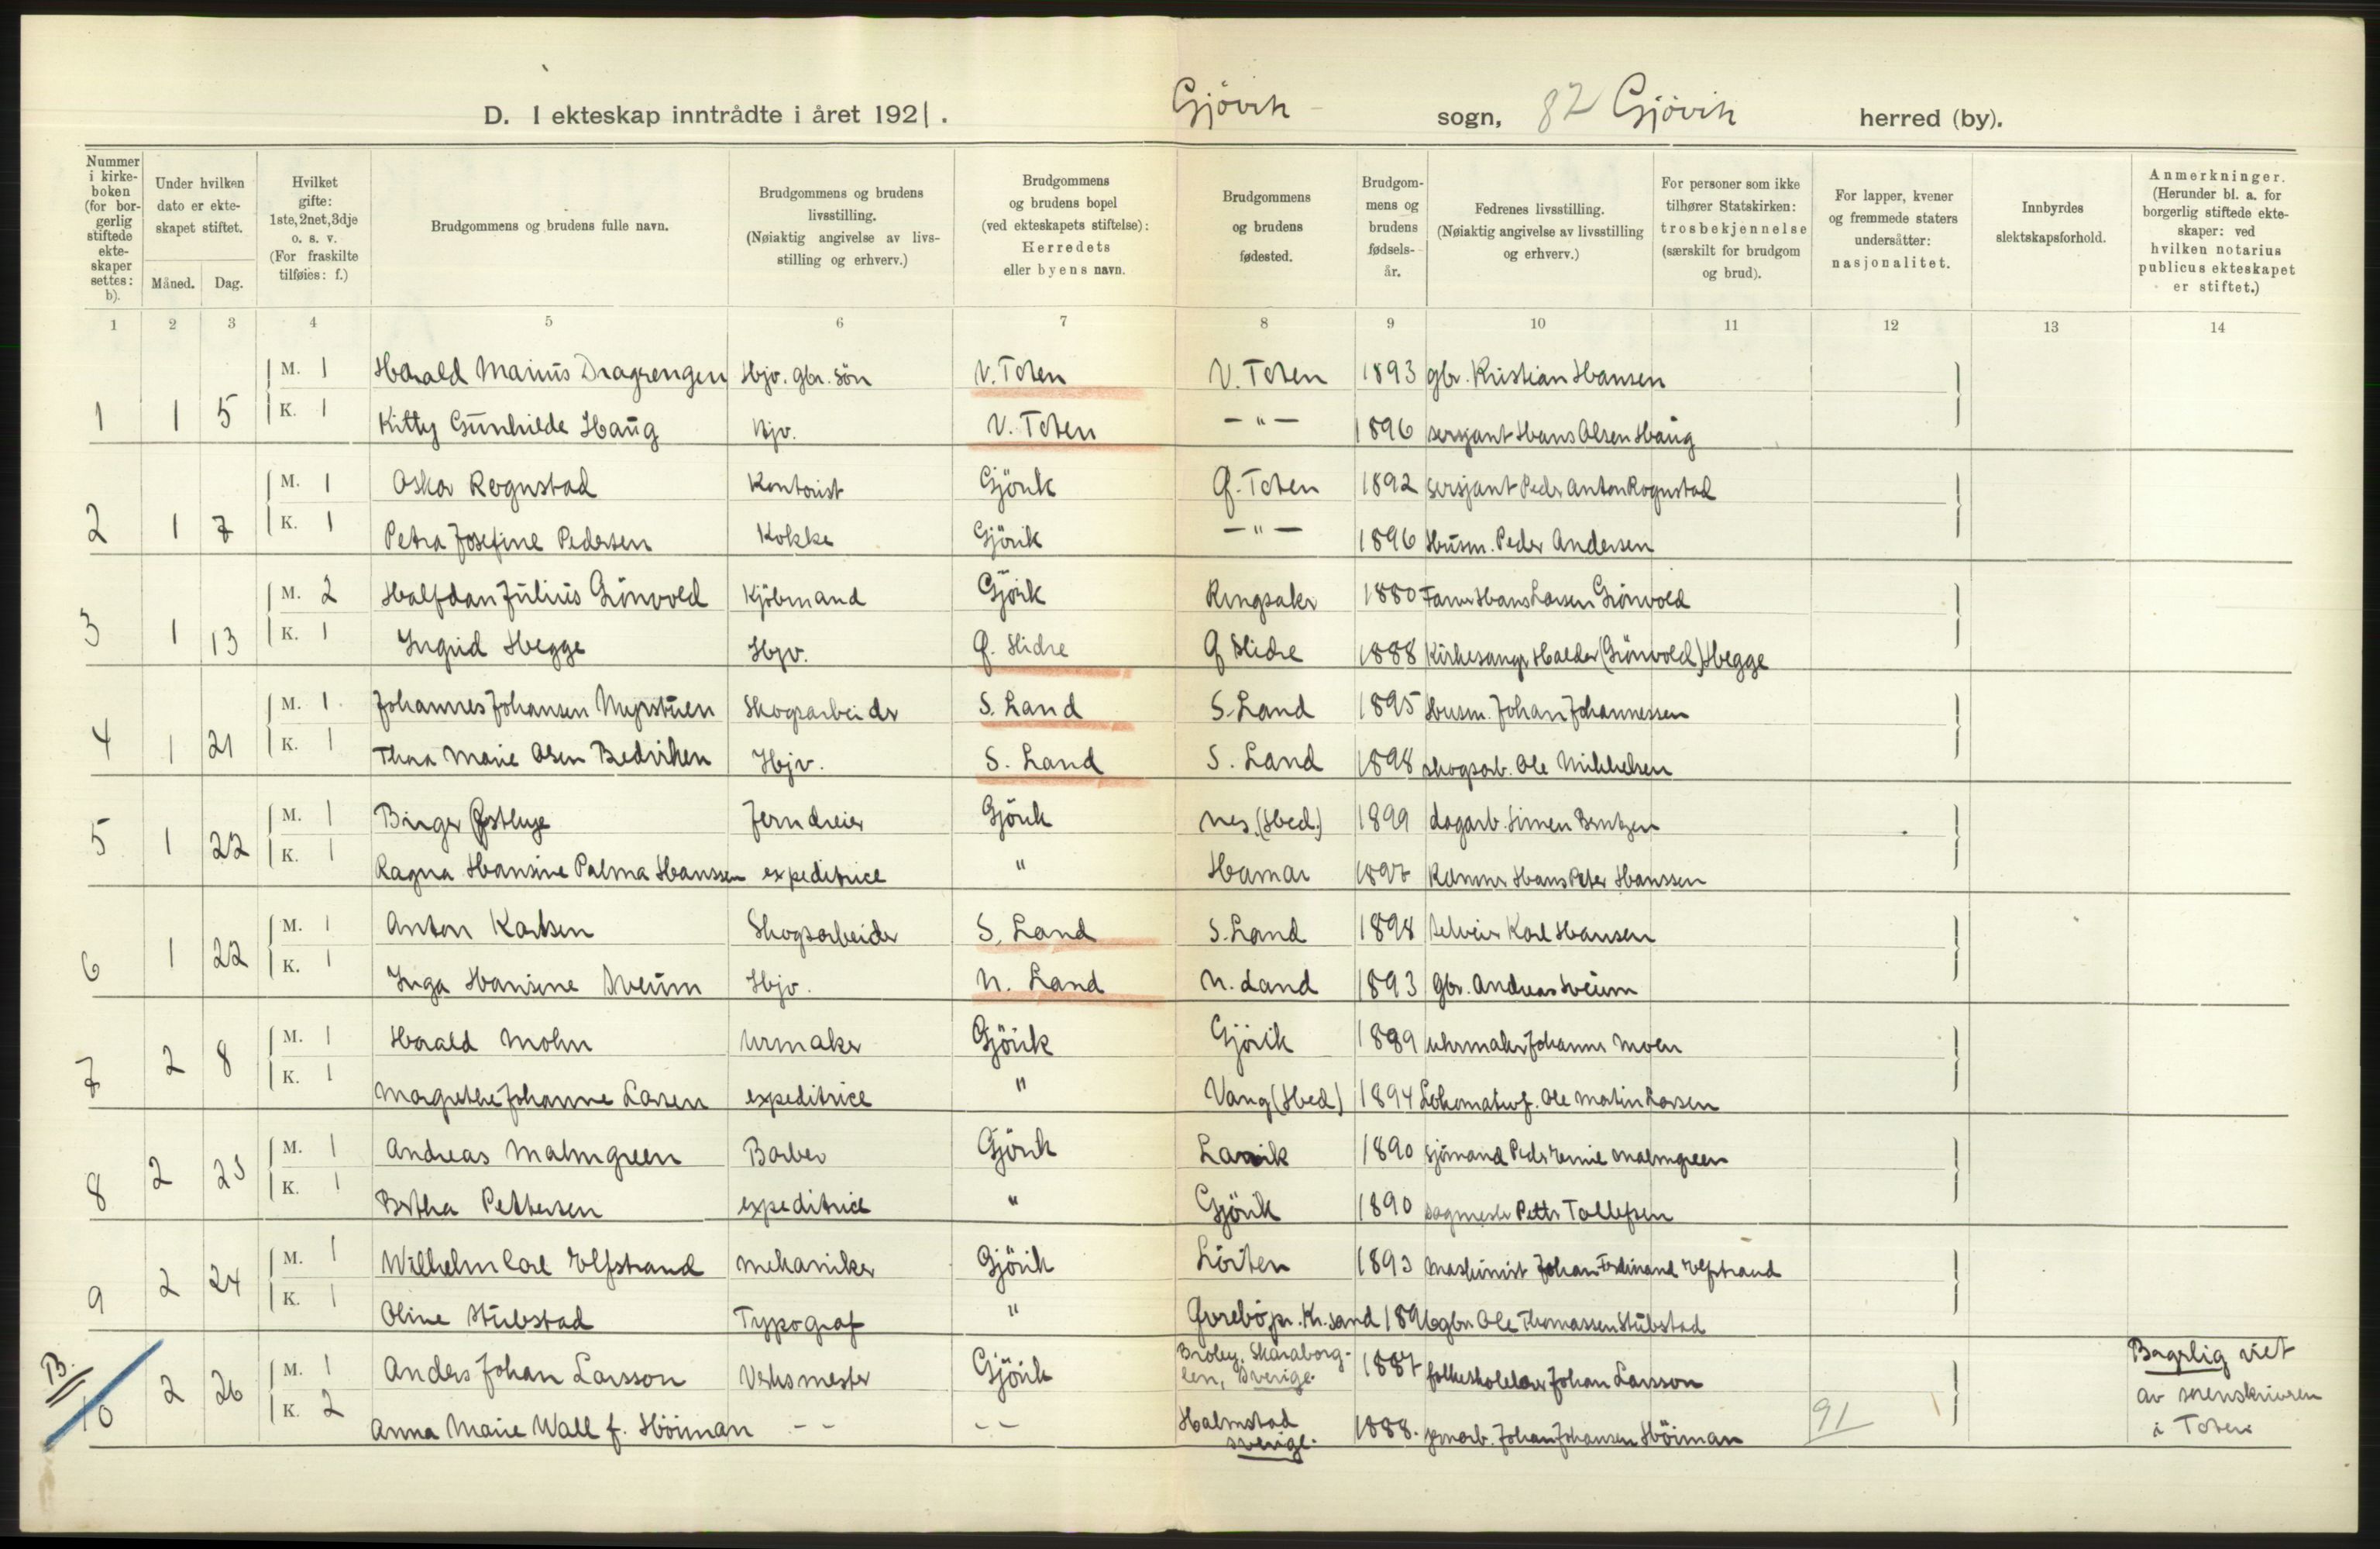 D. I ekteskap inntrådte i året 1921. Gjövik sogn, 82 Gjövik herred (by).
Nummer i kirkeboken (for borgerlig stiftede ekteskaper settes: b).
Under hvilken dato er ekteskapet stiftet.
Måned. Dag.
Hvilket gifte: 1ste, 2net, 3dje o. s. v. (For fraskilte tilføies: f.)
Brudgommens og brudens fulle navn.
Brudgommens og brudens livsstilling. (Nøiaktig angivelse av livsstilling og erhverv.)
Brudgommens og brudens bopel (ved ekteskapets stiftelse): Herredets eller byens navn.
Brudgommens og brudens fødested.
Brudgommens og brudens fødselsår.
Fedrenes livsstilling. (Nøiaktig angivelse av livsstilling og erhverv.)
For personer som ikke tilhører Statskirken: trosbekjennelse (særskilt for brudgom og brud).
For lapper, kvener og fremmede staters undersåtter: nasjonalitet.
Innbyrdes slektskapsforhold.
Anmerkninger. (Herunder bl. a. for borgerlig stiftede ekteskaper: ved hvilken notarius publicus ekteskapet er stiftet.)
1 2 3 4 5 6 7 8 9 10 11 12 13 14
M. 1 Harald Marius Dragsengen Hjv. gbr. sön V. Toten V. Toten 1893 gbr. Kristian Hansen
1 1 5 K. 1 Kitty Gunhilde Haug Hjv. V. Toten — " — 1896 sersjant Hans Olsen Haug
M. 1 Oskar Rognstad Kontorist Gjövik Ø. Toten 1892 sersjant Peder Anton Rognstad
2 1 7 K. 1 Petra Josefine Pedersen Kokke Gjövik — " — 1896 Husm. Peder Andersen
M. 2 Halfdan Julius Grönvold Kjöbmand Gjövik Ringsaker 1880 Farver Hans Larsen Grönvold
3 1 13 K. 1 Ingrid Hegge Hjv. Ø. Slidre Ø Slidre 1888 Kirkesanger Haldor (Grönvold) Hegge
M. 1 Johannes Johansen Myrstuen Skogsarbeider S. Land S. Land 1895 Husm. Johan Johannessen
4 1 21 K. 1 Thora Marie Olsen Bedviken Hjv. S. Land S. Land 1898 skogsarb. Ole Mikkelsen
5 1 22 M. 1 Birger Østhuge Jerndreier Gjövik Nes. (Hed.) 1899 dagarb. Simen Berntzen
K. 1 Ragna Hansine Palma Hanssen expeditrice " Hamar 1897 Hans Peter Hanssen
M. 1 Anton Karlsen Skogsarbeider S. Land S. Land 1898 Selveier Karl Hansen
6 1 22 K. 1 Inga Hansine Sveum Hjv. N. Land N. Land 1893 Gbr. Andreas Sveum
M. 1 Harald Mohn Urmaker Gjövik Gjövik 1889 uhrmaker Johannes Moen
7 2 8 K. 1 Magrethe Johanne Larsen expeditrice " Vang (Hed) 1894 Lokomotivf. Ole Martin Larsen
M. 1 Andreas Malmgreen Barber Gjövik Larvik 1890 sjömand Peder Malmgreen
8 2 23 K. 1 Bertha Pettersen expeditrice " Gjövik 1890 sagmester Petter Tollefsen
M. 1 Wilhelm Carl Elfstrand mekaniker Gjövik Löiten 1893 Maskinist Johan Ferdinand Elfstrand
9 2 24 K. 1 Oline Stubstad Typograf " Øvrebö pr. Kr.sand 1896 gbr. Ole Thomassen Stubstad
B. M. 1 Anders Johan Larsson Verksmester Gjövik Broby, Skaraborglen, Sverige. 1887 folkeskolelærer Johan Larsson Borgerlig viet
10 2 26 K. 2 Anna Marie Wall f. Höiman - - - - Halmstad Sverige. 1888. jernarb. Johan Johansen Höiman 91 av sorenskriveren
i Toten